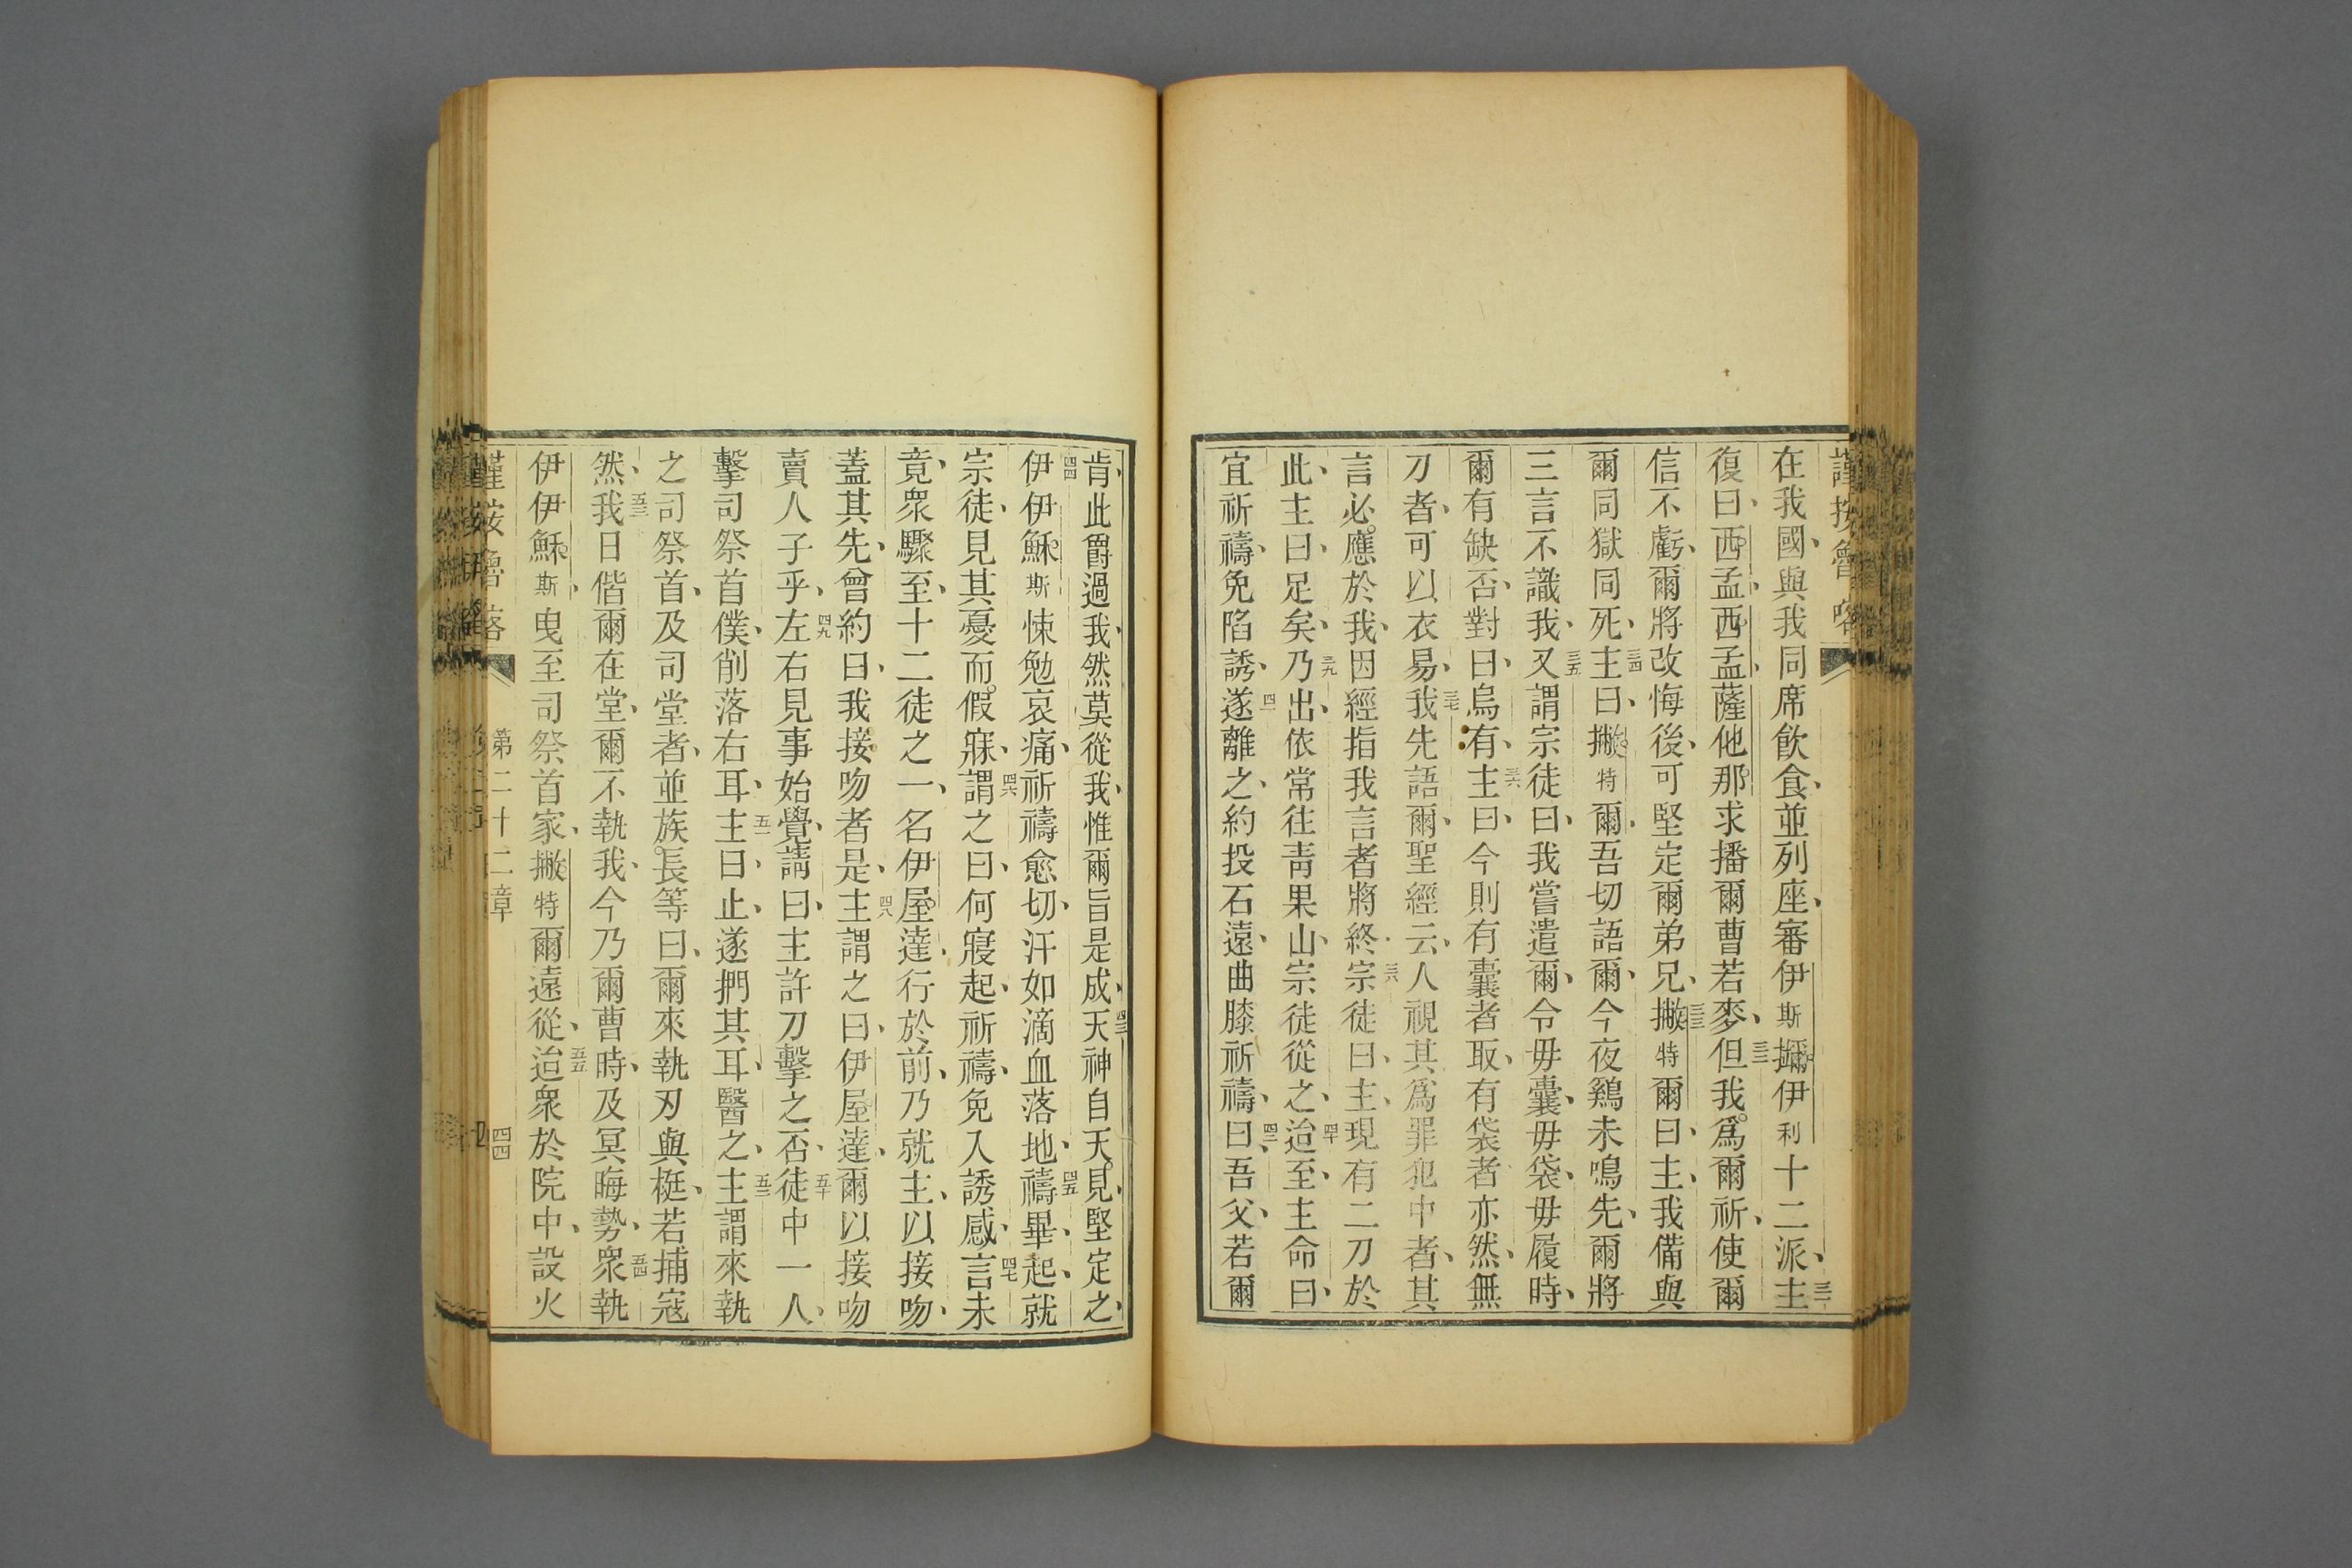 在我國與我同席飲食並列座審伊斯攡伊利十二派主三一
復曰西孟西孟薩他那求播爾曹若麥三二但我爲爾祈使爾
信不虧爾將改悔後可堅定爾弟兄三三撇特爾曰主我備與
爾同獄同死三四主曰撇特爾吾切語爾今夜鷄未鳴先爾將
三言不識我三五又謂宗徒曰我嘗遣爾令毋囊毋袋毋履時
爾有缺否對曰烏有三六主曰今則有囊者取有袋者亦然無
刀者可以衣易三七我先語爾聖經云人視其爲罪犯中者其
言必應於我因經指我言者將終三八宗徒曰主現有二刀於
此主曰足矣三九乃出依常往靑果山宗徒從之四十迨至主命曰
宜祈禱免陷誘四一遂離之約投石遠曲膝祈禱四二曰吾父若爾
肯此爵過我然莫從我惟爾旨是成四三天神自天見堅定之
四四伊伊穌斯悚勉哀痛祈禱愈切汗如滴血落地四五禱畢起就
宗徒見其憂而假寐四六謂之曰何寢起祈禱免入誘感四七言未
竟衆驟至十二徒之一名伊屋達行於前乃就主以接吻
蓋其先曾約曰我接吻者是四八主謂之曰伊屋達爾以接吻
賣人子乎四九左右見事始覺請曰主許刀擊之否五十徒中一人
擊司祭首僕削落右耳五一主曰止遂捫其耳醫之五二主謂來執
之司祭首及司堂者並族長等曰爾來執刃與梃若捕寇
然五三我日偕爾在堂爾不執我今乃爾曹時及冥晦勢五四衆執
伊伊穌斯曳至司祭首家撇特爾遠從五五迨衆於院中設火
謹按魯喀 第二十二章 四四